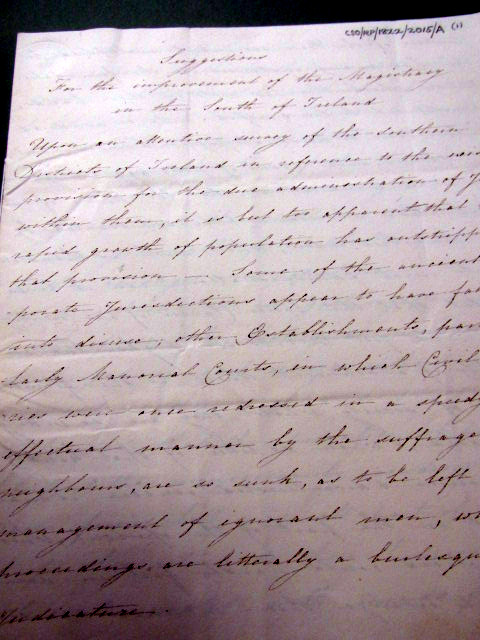 CSO/RP/1822/2015/A (1)
Suggestions
For the improvement of the Magistracy
in the South of Ireland
Upon an attentive survey of the southern
Districts of Ireland in reference to the
provision for the due administration of J
within them, it is but too apparent that
rapid growth of population has outstripp
that provision — Some of the ancient
porate Jurisdictions appear to have fa
into disuse; other Establishments, par
larly Manorial Courts, in which Civil
ries were once redressed in a speedy
effectual manner by the suffrage
neighbours, are so sunk, as to be left
management of ignorant men, w
proceedings are litterally a burlesqu
Judicature.